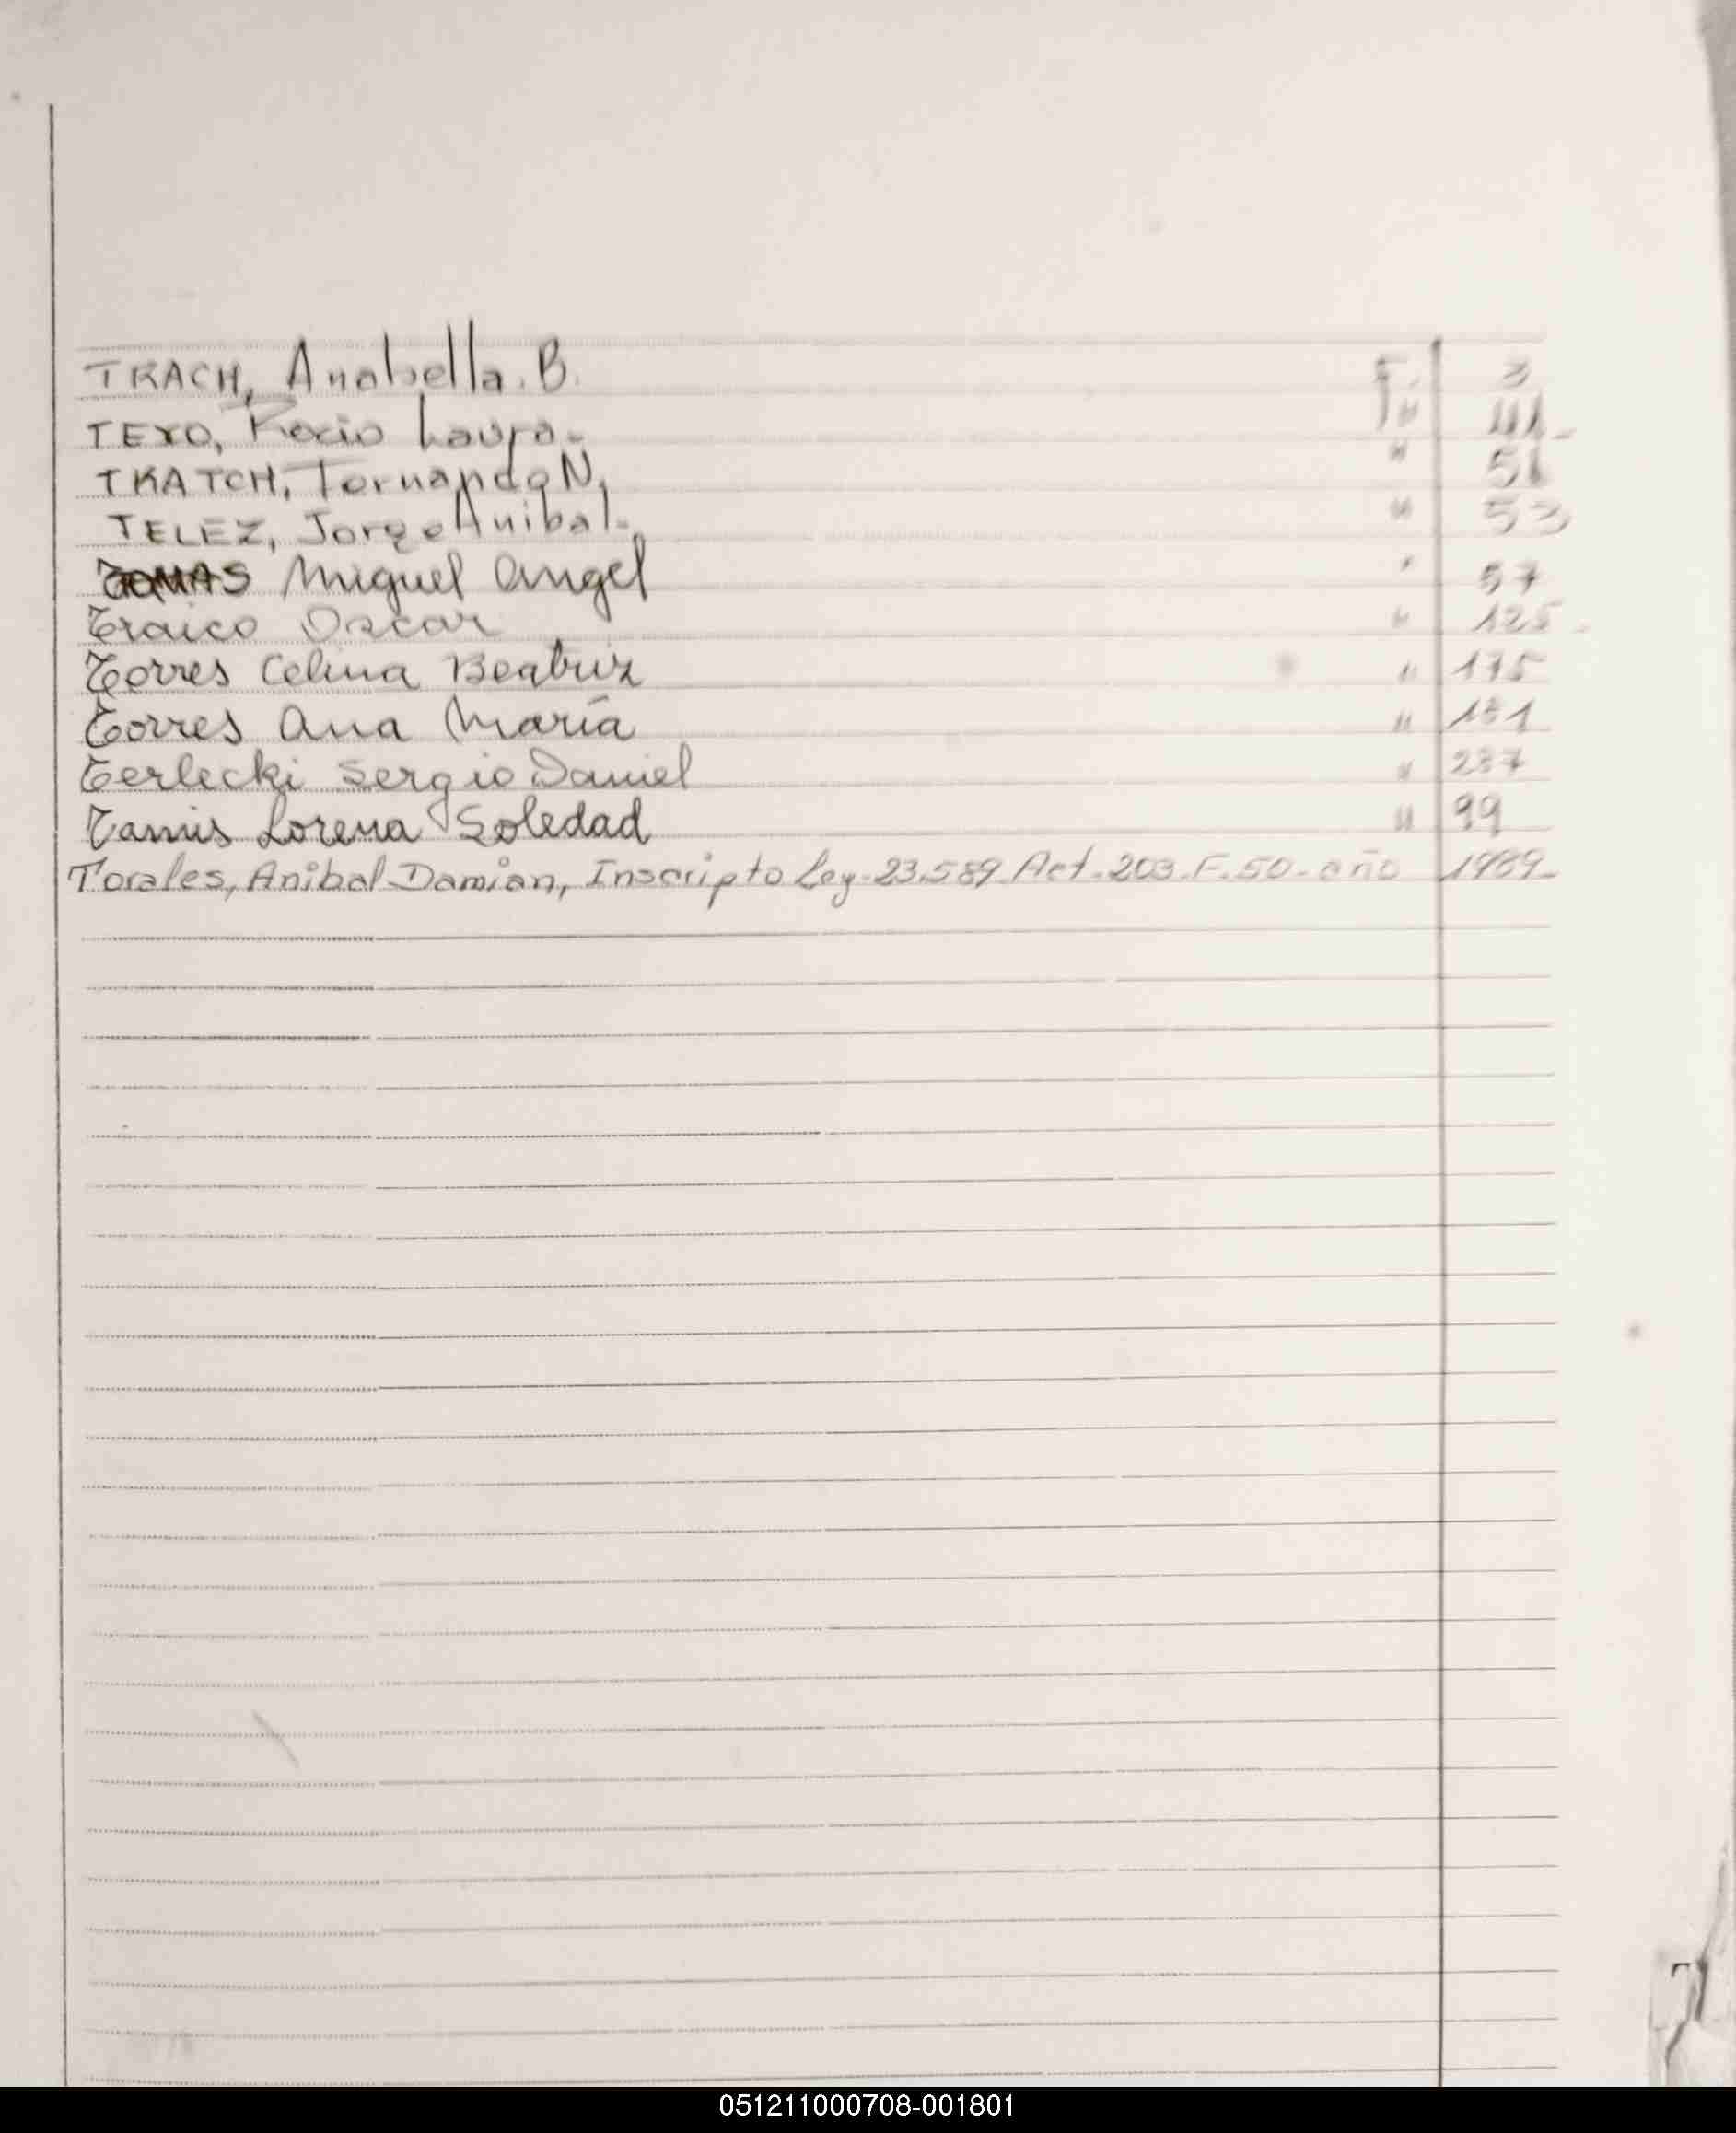 TRACH, Anabella. B. F. 3
TEXO, Rocio Laura. " 41-
TKATCH, Fernando N. " 51
TELEZ, Jorge Anibal. " 53
TOMAS Miguel Angel " 57
Traico Oscar " 125-
Torres Celina Beatriz " 175
Torres Ana María " 181
Terlecki Sergio Daniel " 237
Tannis Lorena Soledad " 99
Torales, Anibal Damian, Inscripto Ley-23.589 Act-203-F.50-año 1989-
051211000708-001801